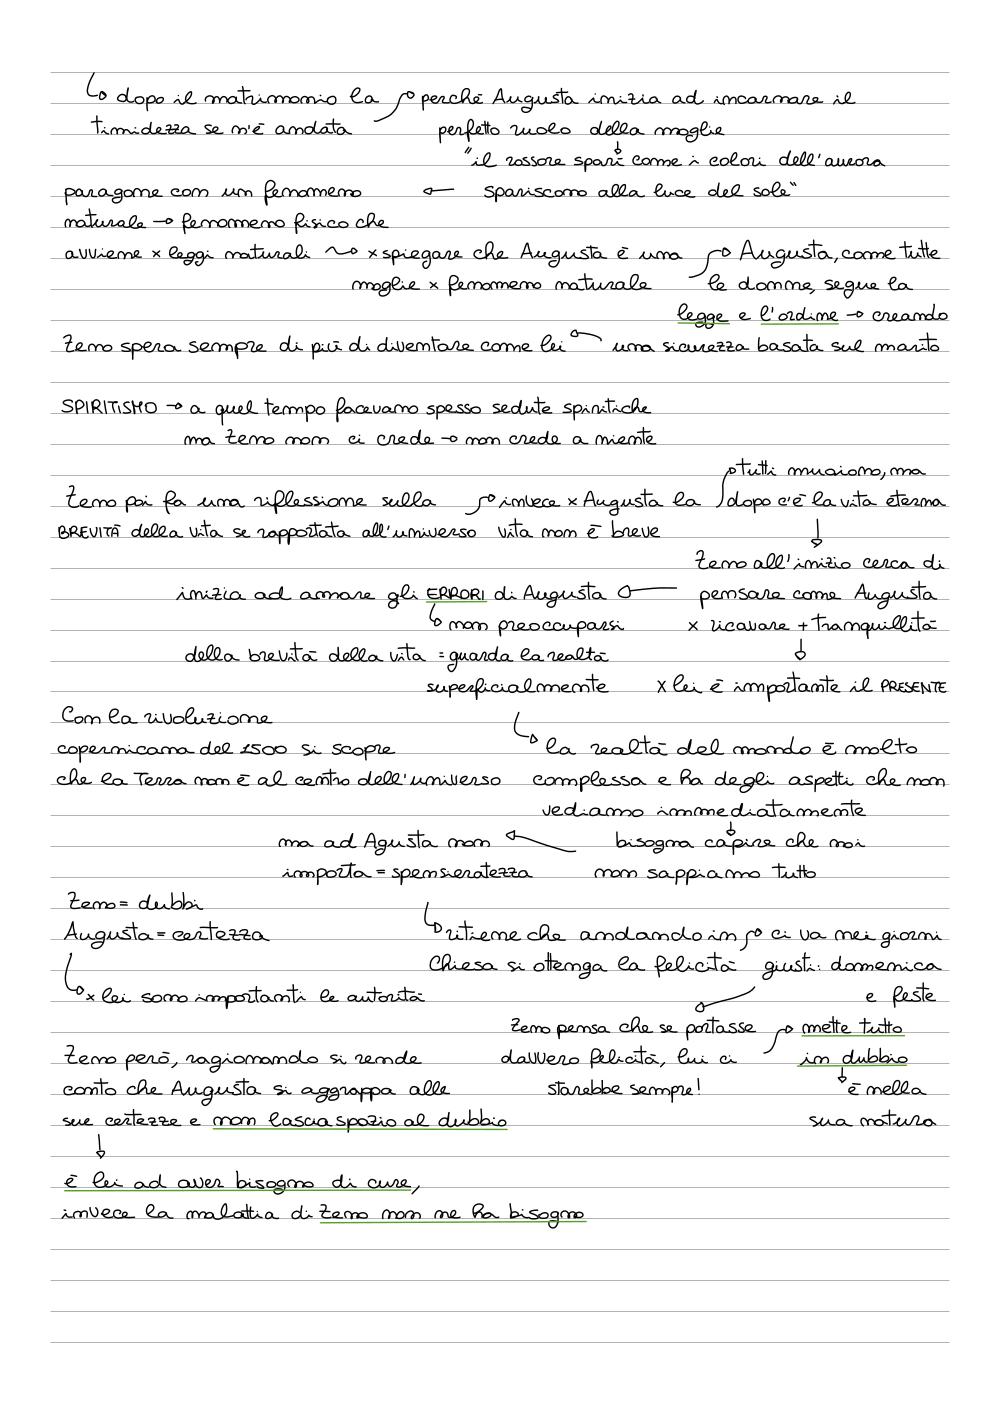 ↳ dopo il matrimonio la → perchē Augusta inizia ad incarnare il
timidezza se n'ē andata perfetto ruolo della moglie
"il rossore sparī come i colori dell'aurora
paragone con un fenomeno ← spariscono alla luce del sole"
naturale → fenomeno fisico che
avviene x leggi naturali → x spiegare che Augusta ē una → Augusta, come tutte
moglie x fenomeno naturale le donne, segue la
legge e l'ordine → creando
Zeno spera sempre di piū di diventare come lei ← una sicurezza basata sul marito
SPIRITISMO → a quel tempo facevano spesso sedute spiritiche
ma Zeno non ci crede → non crede a niente
tutti muoiono, ma
Zeno poi fa una riflessione sulla → invece x Augusta la → dopo c'ē la vita eterna
BREVITĀ della vita se rapportata all'universo vita non ē breve
↓
Zeno all'inizio cerca di
inizia ad amare gli ERRORI di Augusta ← pensare come Augusta
↳ non preoccuparsi x ricavare + tranquillitā
↓
della brevitā della vita = guarda la realtā
superficialmente x lei ē importante il PRESENTE
Con la rivoluzione
copernicana del 1500 si scopre ↳ la realtā del mondo ē molto
che la Terra non ē al centro dell'universo complessa e ha degli aspetti che non
vediamo immediatamente
↓
ma ad Agusta non ← bisogna capire che noi
importa = spensieratezza non sappiamo tutto
Zeno = dubbi
Augusta = certezza ↳ ritiene che andando in → ci va nei giorni
Chiesa si ottenga la felicitā giusti: domenica
↳ x lei sono importanti le autoritā e feste
Zeno pensa che se portasse → mette tutto
Zeno perō, ragionando si rende davvero felicitā, lui ci in dubbio
conto che Augusta si aggrappa alle starebbe sempre! ↓ ē nella
sue certezze e non lascia spazio al dubbio sua natura
↓
ē lei ad aver bisogno di cure,
invece la malattia di Zeno non ne ha bisogno